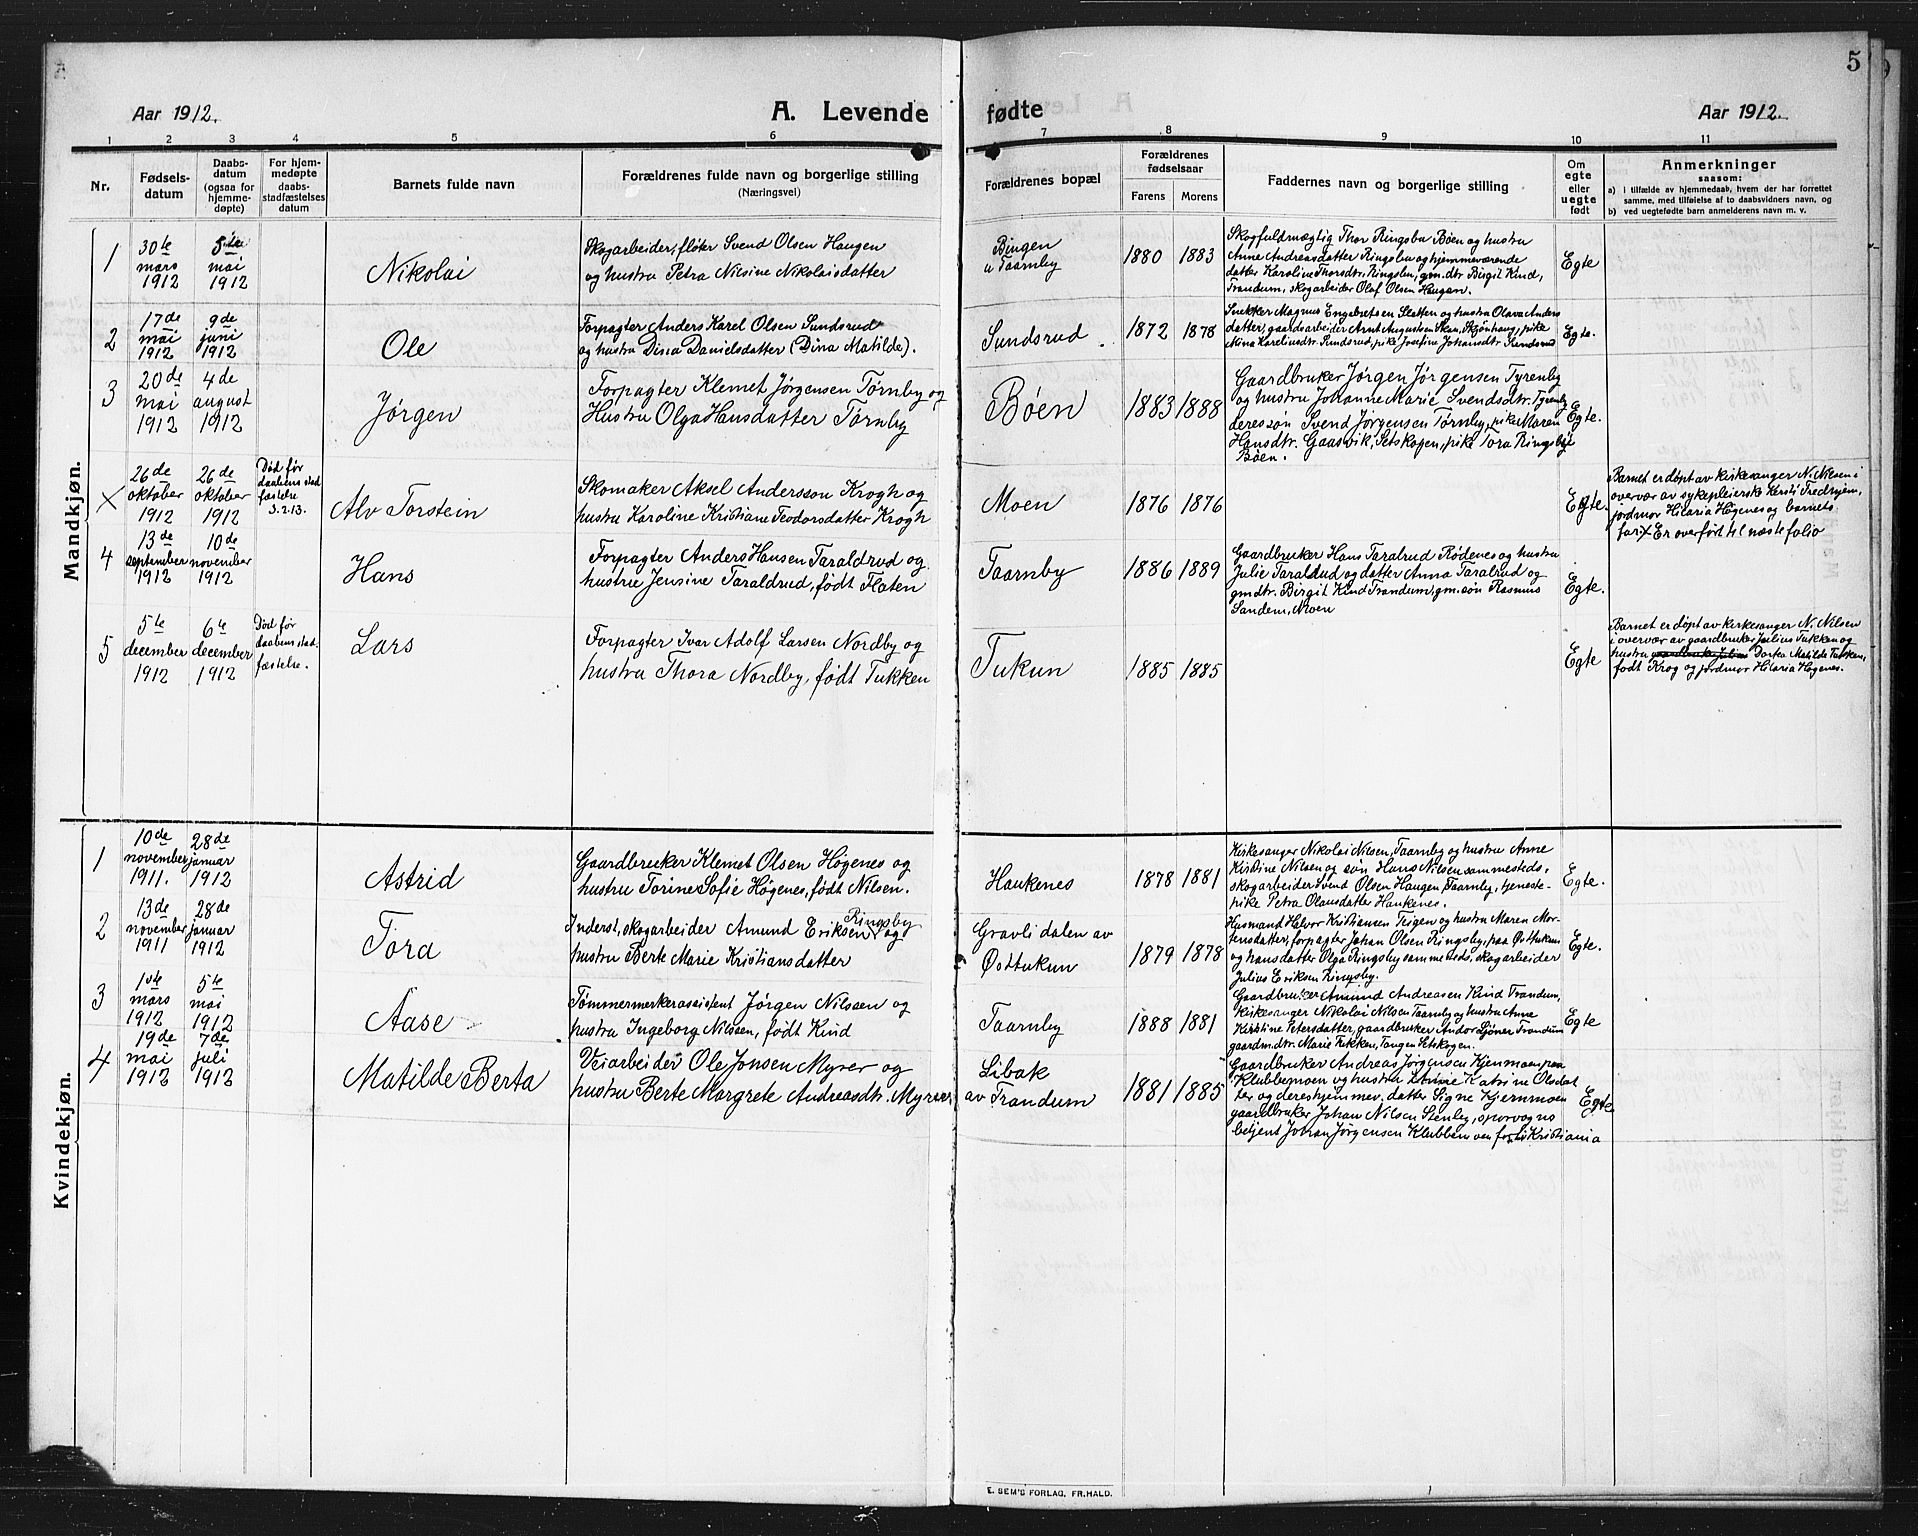 5
Aar 1912.
A. Levende
fødte
Aar 1912.
1 2 3 4 5 6 7 8 9 10 11
Nr.
Fødsels-
datum
Daabs-
datum
(ogsaa for
hjemme-
døpte)
For hjem-
medøpte
daabs-
stadfæstelses
datum
Barnets fulde navn
Forældrenes fulde navn og borgerlige stilling
(Næringsvei)
Forældrenes bopæl
Forældrenes
fødselsaar
Farens Morens
Faddernes navn og borgerlige stilling
Om
egte
eller
uegte
født
Anmerkninger
saasom:
a) i tilfælde av hjemmedaab, hvem der har forrettet
samme, med tilføielse af to daabsvidners navn, og
b) ved uegtefødte barn anmelderens navn m. v.
Mandkjøn.
1
30te
mars
1912
5te
mai
1912
Nikolai
Skogarbeider, fløter Svend Olsen Haugen
og hustru Petra Nilsine Nikolaisdatter
Bingen
u Taarnby
1880 1883
Skogfuldmægtig Thor Ringsbu Bøen og hustru
Anne Andreasdatter Ringsbu og hjemmeværende
datter Karoline Thorsdtr. Ringsbu, gm.dtr Birgit Kind,
Trandum, skogarbeider Olaf Olsen Haugen.
Egte
2
17de
mai
1912
9de
juni
1912
Ole
Forpagter Anders Karel Olsen Sundsrud
og hustru Dina Danielsdatter (Dina Matilde).
Sundsrud
1872 1878
Snekker Magnus Engebretsen Sletten og hustru Olava Anders
datter, gaardsarbeider Arnt Augustsen Skan, Skjønhaug, pike
Mina Kareliusdtr. Sundsrud, pike Josefine Johansdtr. Sundsrud
Egte.
3
20de
mai
1912
4de
august
1912
Jørgen
Forpagter Klemet Jørgensen Tørnby og
Hustru Olga Hansdatter Tørnby
Bøen
1883 1888
Gaardbruker Jørgen Jørgensen Tyrenby
og hustru Johanne Marie Svendsdtr. Tyrenby
deres søn Svend Jørgensen Tørnby, pike Maren
Hansdtr. Gaasvik, Setskogen, pike Tora Ringsbye
Bøen.
Egte.
X
26de
oktober
1912
26de
oktober
1912
Død før
daabens stad
fæstelse
3.2.13.
Alv Torstein
Skomaker Aksel Andersson Krogh og
hustru Karoline Kristiane Teodorsdatter Krogh
Moen
1876 1876
Egte.
Barnet er døpt av kirkesanger N. Nilsen i
overvær av sykepleierske Kersti Fredhjem,
jordmor Hilaria Høgenes og barnets
far. X Er overført til næste folio
4
13de
september
1912
10de
november
1912
Hans
Forpagter Anders Hansen Taraldrud og
hustru Jensine Taraldrud, født Flaten
Taarnby
1886 1889
Gaardbruker Hans Taralrud Rødenes og hustru
Julie Taraldrud og datter Anna Taralrud og
gmdtr. Birgit Kind Trandum, gm. søn Rasmus
Sandem, Moen
Egte.
5
5te
december
1912
6te
december
1912
Død før
daabens stad-
fæstelse.
Lars
Forpagter Ivar Adolf Larsen Nordby og
hustru Thora Nordby, født Tukken
Tukun
1885 1885
Egte
Barnet er døpt av kirkesanger N. Nilsen
i overvær av gaardbruker Julius Tukken og
hustru gaardbruker Julius Dortea Matilde Tukken,
født Krog og jordmor Hilaria Høgenes.
Kvindekjøn.
1
10de
november
1911.
28de
januar
1912
Astrid
Gaardbruker Klemet Olsen Høgenes og
hustru Torine Sofie Høgenes, født Nilsen.
Haukenes
1878 1881
Kirkesanger Nikolai Nilsen, Taarnby og hustru Anne
Kirstine Nilsen og søn Hans Nilsen sammesteds,
skogarbeider Svend Olsen Haugen, Taarnby, tjeneste-
pike Petra Olausdatter Haukenes.
Egte.
2
13de
november
1911
28de
januar
1912
Tora
Inderst, skogarbeider Amund Eriksen Ringsby og
hustru Berte Marie Kristiansdatter
Gravli dalen av
Østtukun
1879 1878
Husmand Halvor Kristiansen Teigen og hustru Maren Mor-
tensdatter, forpagter Johan Olsen Ringsby, paa Østtukun
og hans datter Olga Ringsby sammesteds, skogarbeider
Julius Eriksen Ringsby.
Egte.
3
1ste
mars
1912
5te
mai
1912
Aase
Tømmermerkerassistent Jørgen Nilssen og
hustru Ingeborg Nilssen, født Kind
Taarnby
1888 1881
Gaardbruker Amund Andreasen Kind Trandum,
Kirkesanger Nikolai Nilsen Taarnby og hustru Anne
Kirstine Petersdatter, gaardbruker Andor Sjøner Trandum
gaardm.dtr. Marie Tukken, Tangen Setskogen.
Egte
4
19de
mai
1912
7de
juli
1912
Matilde Berta
Veiarbeider Ole Jonsen Myrer og
hustru Berte Margrete Andreasdtr. Myrer
Libak
av Trandum
1881 1885
Gaardbruker Andreas Jørgensen Kjenmoen paa
Klubbemoen og hustru Lovise Katrine Olsdat
ter og dereshjemmev. datter Signe Kjernmoen
gaardbruker Johan Nilsen Stenby, sporvogns
betjent Johan Jørgensen Klubbemoen Kristiania
Egte
E. SEM'S FORLAG, FR.HALD.